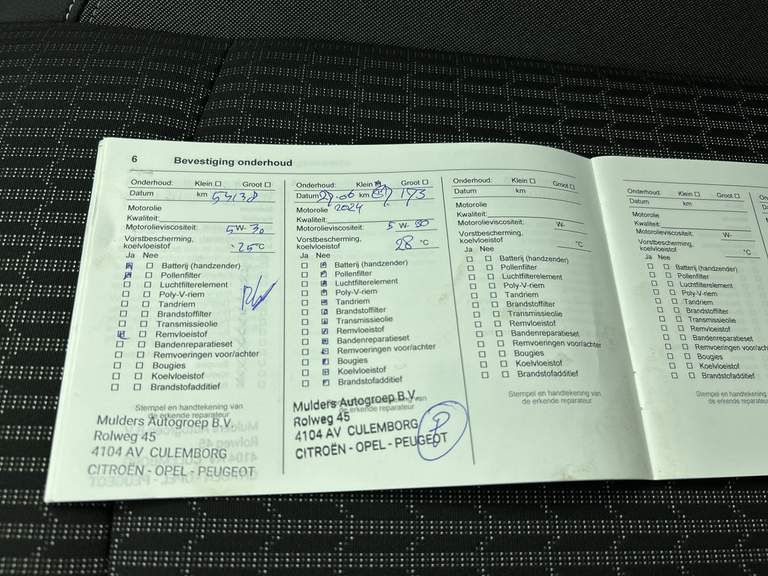 6 Bevestiging onderhoud
Onderhoud: Klein Groot
Datum km 54138
Motorolie
Kwaliteit:
Motorolieviscositeit: 5 W- 30
Vorstbescherming,
koelvloeistof -25 °C
Ja Nee
Batterij (handzender)
Pollenfilter
Luchtfilterelement
Poly-V-riem
Tandriem
Brandstoffilter
Transmissieolie
Remvloeistof
Bandenreparatieset
Remvoeringen voor/achter
Bougies
Koelvloeistof
Brandstofadditief
Stempel en handtekening van
de erkende reparateur
Mulders Autogroep B.V.
Rolweg 45
4104 AV CULEMBORG
CITROËN - OPEL - PEUGEOT
Onderhoud: Klein Groot
Datum km 173
2024
Motorolie
Kwaliteit:
Motorolieviscositeit: 5 W-
Vorstbescherming,
koelvloeistof 28 °C
Ja Nee
Batterij (handzender)
Pollenfilter
Luchtfilterelement
Poly-V-riem
Tandriem
Brandstoffilter
Transmissieolie
Remvloeistof
Bandenreparatieset
Remvoeringen voor/achter
Bougies
Koelvloeistof
Brandstofadditief
Stempel en handtekening van
de erkende reparateur
Mulders Autogroep B.V.
Rolweg 45
4104 AV CULEMBORG
CITROËN - OPEL - PEUGEOT
Onderhoud: Klein Groot
Datum km
Motorolie
Kwaliteit:
Motorolieviscositeit: W-
Vorstbescherming,
koelvloeistof °C
Ja Nee
Batterij (handzender)
Pollenfilter
Luchtfilterelement
Poly-V-riem
Tandriem
Brandstoffilter
Transmissieolie
Remvloeistof
Bandenreparatieset
Remvoeringen voor/achter
Bougies
Koelvloeistof
Brandstofadditief
Stempel en handtekening van
de erkende reparateur
Onderhoud: Klein Groot
Datum km
Motorolie
Kwaliteit:
Motorolieviscositeit: W-
Vorstbescherming,
koelvloeistof °C
Ja Nee
Batterij (handzender)
Pollenfilter
Luchtfilterelement
Poly-V-riem
Tandriem
Brandstoffilter
Transmissieolie
Remvloeistof
Bandenreparatieset
Remvoeringen voor/achter
Bougies
Koelvloeistof
Brandstofadditief
Stempel en handtekening van
de erkende reparateur